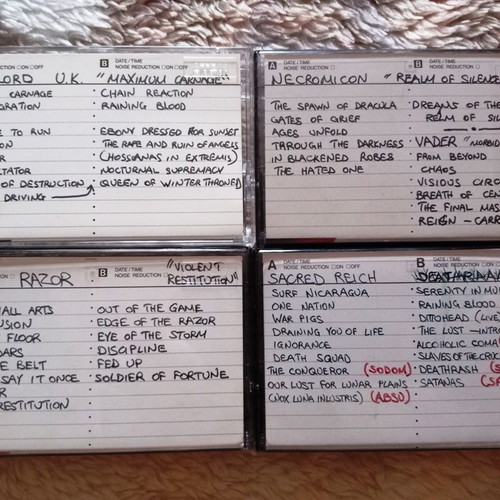 B DATE/TIME
NOISE REDUCTION ON OFF
LORD U.K. "MAXIMUM CARNAGE"
CARNAGE
CHAIN REACTION
RAINING BLOOD
TO RUN
EBONY DRESSED FOR SUNSET
THE RAPE AND RUIN OF ANGELS
(HOSSANAS IN EXTREMIS)
NOCTURNAL SUPREMACY
OF DESTRUCTION
QUEEN OF WINTER THRONED
DRIVING
A DATE/TIME
NOISE REDUCTION
B DATE/TIME
NOISE REDUCTION ON OFF
NECROMICON "REALM OF SILENCE
THE SPAWN OF DRACULA
GATES OF GRIEF
AGES UNFOLD
THROUGH THE DARKNESS
IN BLACKENED ROBES
THE HATED ONE
DREAMS OF THE
REALM OF SIL
VADER "MORBID
FROM BEYOND
CHAOS
VISIOUS CIRC
BREATH OF CEN
THE FINAL MAS
REIGN - CARR
B DATE/TIME
NOISE REDUCTION ON OFF
RAZOR
"VIOLENT
RESTITUTION"
ALL ARTS
USION
FLOOR
ARS
E BELT
SAY IT ONCE
R
RESTITUTION
OUT OF THE GAME
EDGE OF THE RAZOR
EYE OF THE STORM
DISCIPLINE
FED UP
SOLDIER OF FORTUNE
A DATE/TIME
NOISE REDUCTION ON OFF
B DATE/TIME
SACRED REICH
SURF NICARAGUA
ONE NATION
WAR PIGS
DRAINING YOU OF LIFE
IGNORANCE
DEATH SQUAD
THE CONQUEROR (SODOM)
OUR LUST FOR LUNAR PLAINS
(NOX LUNA INLUSTRIS) (ABSU)
SERENITY IN MUR
RAINING BLOOD
DITOHEAD (LIVE)
THE LUST - INTRO
ALCOHOLIC COMA
SLAVES OF THE CRUC
DEATHRASH (S
SATANAS (SA